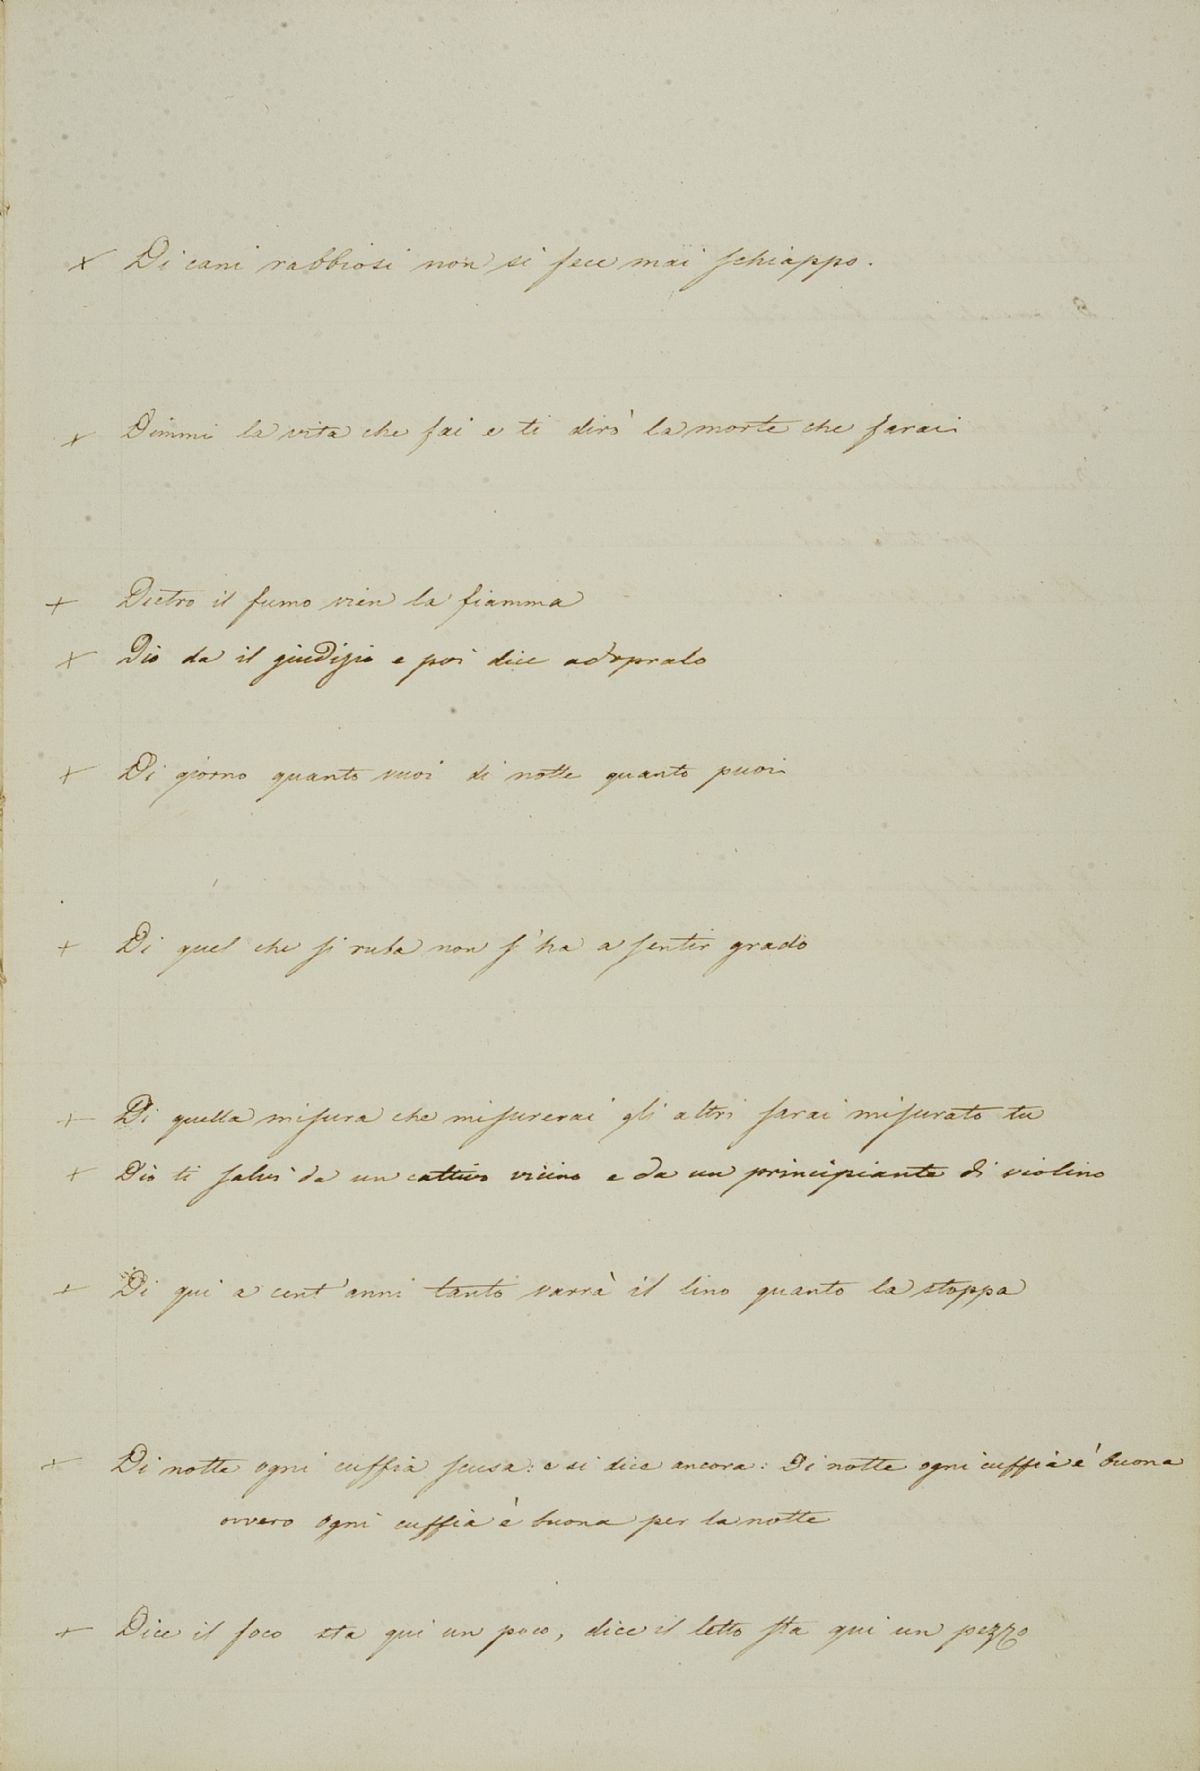 × Di cani rabbiosi non si fece mai schiappo.
× Dimmi la vita che fai e ti dirò la morte che farai
+ Dietro il fumo vien la fiamma
× Dio da il giudizio e poi dice adopralo
+ Di giorno quanto vuoi di notte quanto puoi
+ Di quel che si ruba non s'ha a sentir grado
+ Di quella misura che misurerai gli altri sarai misurato tu
+ Dio ti salvi da un cattivo vicino e da un principiante di violino
+ Di qui a cent'anni tanto varrà il lino quanto la stoppa
+ Di notte ogni cuffia scusa: e si dice ancora: Di notte ogni cuffia è buona
ovvero ogni cuffia è buona per la notte
+ Dice il foco sta qui un poco, dice il letto sta qui un pezzo